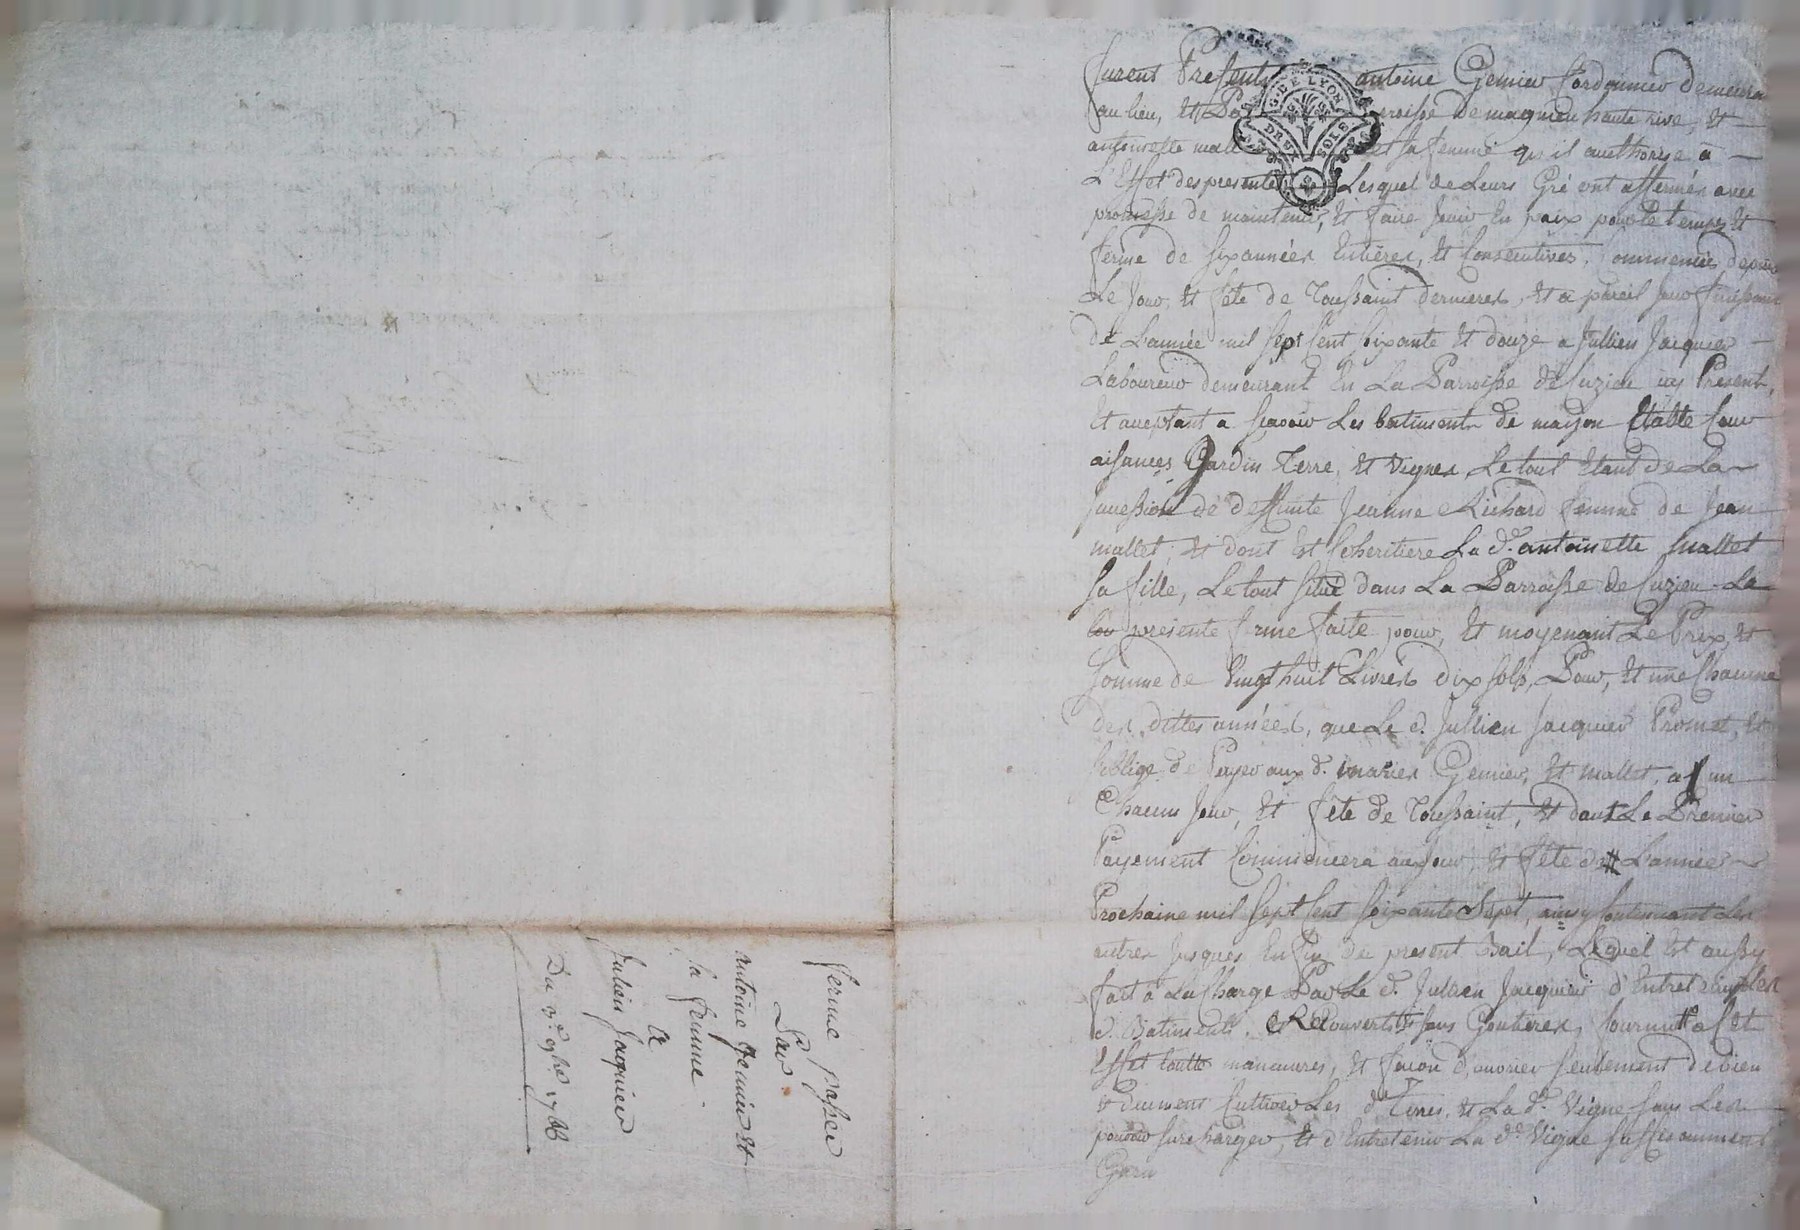 furent Presents antoine Gernier Cordonnier demeurant
au lieu, et Parroisse de magnieu hauterive, et
antoinette mallet sa femme qu'il authorise a
L'Effet des presentes Lesquel de Leurs Gré ont affermés avec
promesse de maintenir, et faire jouir En paix pour le temps et
ferme de six années Entieres, et Consecutives, Commencées depuis
Le Jour, et fête de Toussaint dernieres, et a pareil jour finissant
de L'année mil sept Cent soixante et douze a Jullien Jacquier
Laboureur demeurant En La Parroisse de Cuzieu icy Present,
et acceptant a scavoir Les batiments de maison Etable Cour
aisances Jardin Terre, et vignes, Le tout Etant de La
succession de deffunte Jeanne Richard femme de Jean
mallet, et dont Est Coheritiere La d.e antoinette mallet
sa fille, Le tout situé dans La Parroisse de Cuzieu La
presente ferme faite pour, et moyenant Le Prix, et
somme de Vingt huit Livres dix sols, Pour, et une Chacune
des dittes années, que Le d. Jullien Jacquier Promet, et
s'oblige de Payer aux d. mariés Gernier, et mallet, a un
Chacun Jour, et fête de Toussaint, et dont Le Premier
Payement Commencera au jour, et fête de L'année
Prochaine mil sept Cent soixante Sept, ainsy Continuant Les
autres Jusques En fin du present Bail, Lequel Est aussy
fait a La Charge Par Le d. Jullien Jacquier d'Entretenir Les
d. Batiments, et Recouverts sans Goutieres, fournir a Cet
Effet toutte manoeuvres, et façon d'ouvrier seulement de bien
et duement Cultiver Les d. Terres, et La d.e Vigne sans Les
pouvoir surcharger, et d'Entretenir La d.e Vigne suffisamment
Garn
G. DE LYON
DEUX SOLS
ferme passée
Par
antoine Gernier et
sa femme
a
Julien Jaquier
Du 3.e 9bre 1766